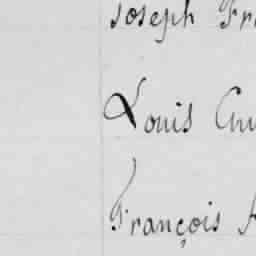 Joseph
Louis
François